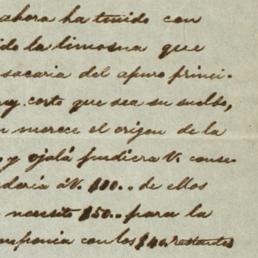 ahora ha tenido con
do la limosna que
sacaria del apuro princi-
uy corto que sea su sueldo,
n merece el origen de la
y ojalá pudiera V. conse-
daria á V. $100.. de ellos
necesito $50.. para la
mponia con los $40 restantes